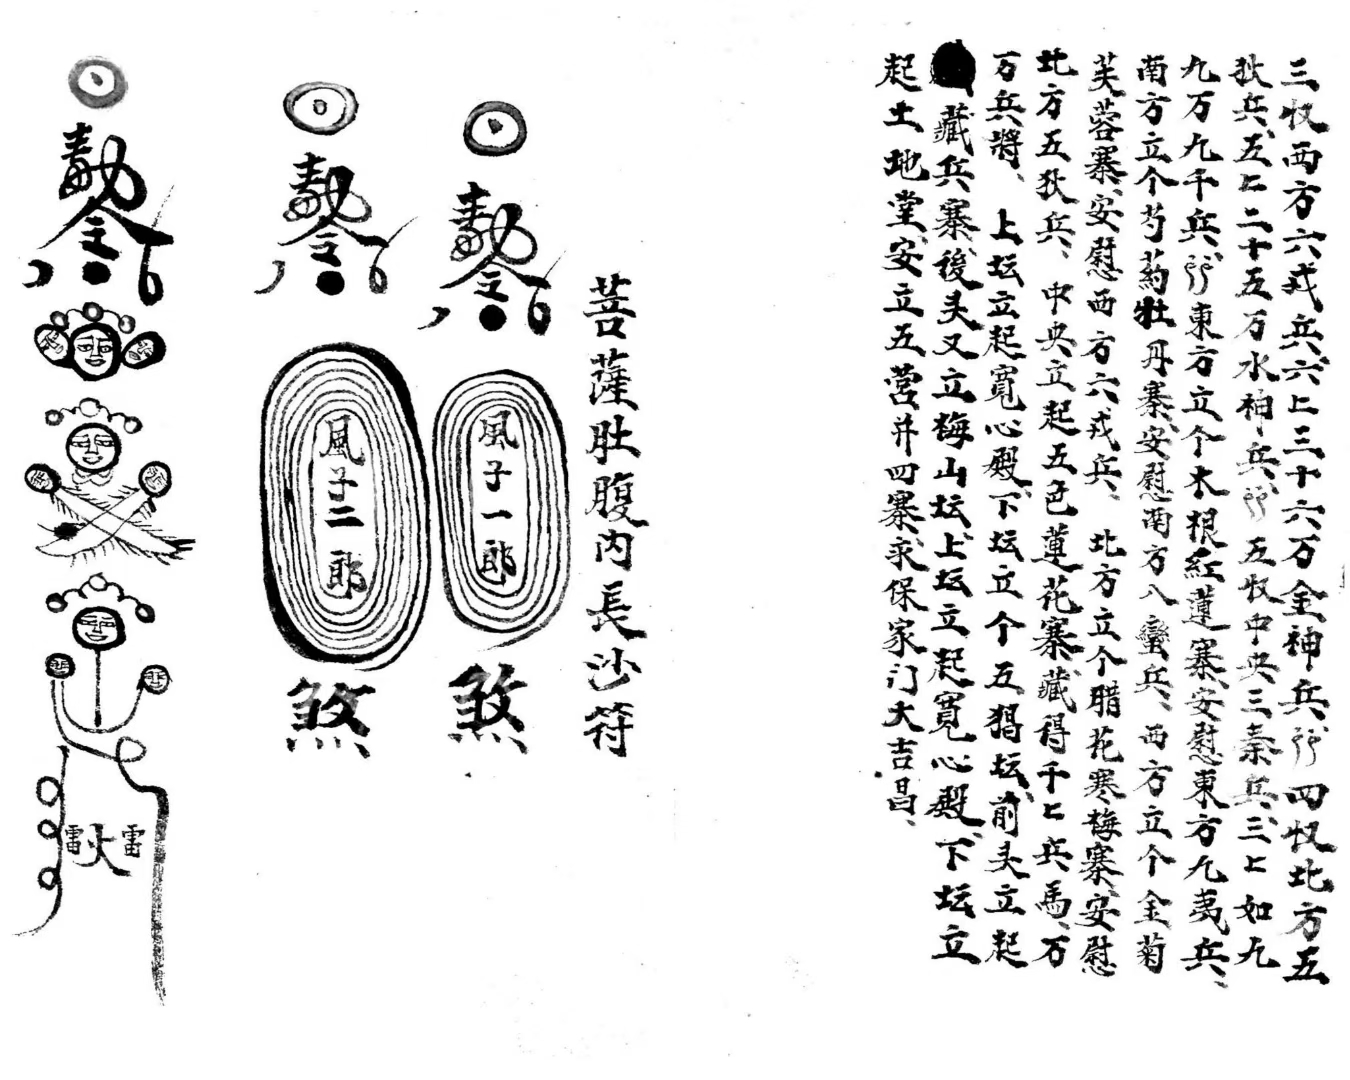 三收西方六戎兵六亡三十六万金神兵行四收北方五
狄兵五亡二十五万水神兵行五收中央三秦兵三亡如九
九万九千兵行東方立个木根紅蓮寨安慰東方九夷兵
南方立个芍药牡丹寨安慰南方八蠻兵西方立个金菊
芙蓉寨安慰西方六戎兵北方立个腊花寒梅寨安慰
北方五狄兵中央立起五色蓮花寨藏得千亡兵馬万
万兵將上坛立起寬心殿下坛立个五猖坛前头立起
藏兵寨後头又立梅山坛上坛立起寬心殿下坛立
起土地堂安立五营并四寨求保家门大吉昌
菩薩肚腹内長沙符
風子一郎
煞
風子二郎
煞
雷火雷